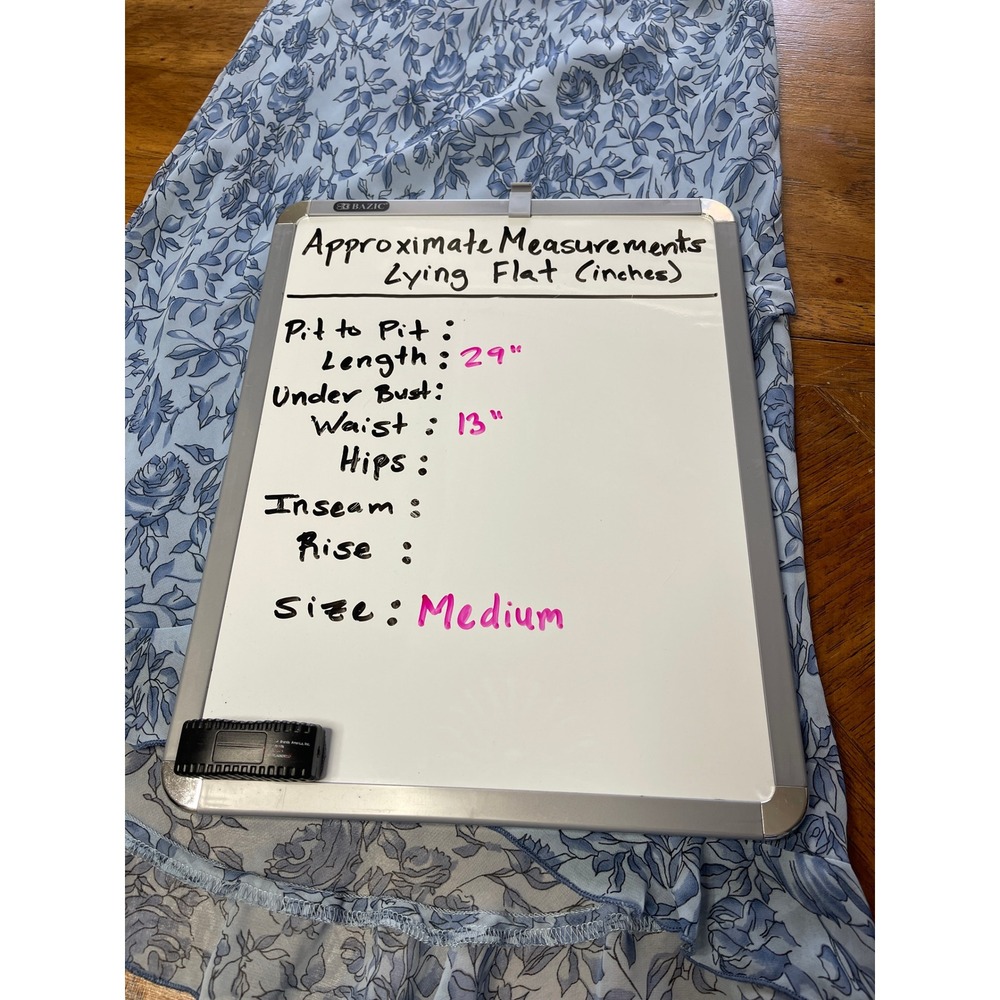 BAZIC
Approximate Measurements
Lying Flat (inches)
Pit to Pit :
Length : 29"
Under Bust:
Waist : 13"
Hips :
Inseam :
Rise :
Size : Medium